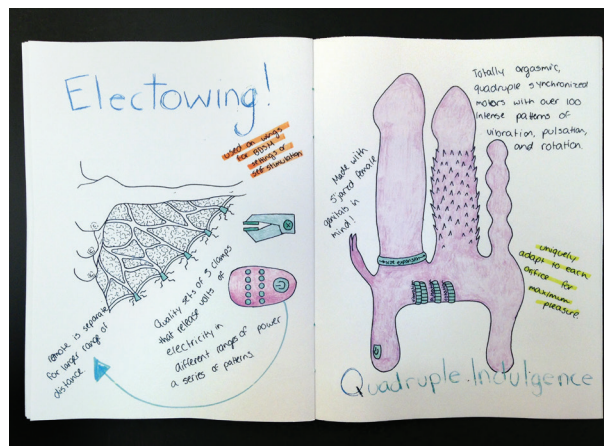 Electowing!
used on wings
for BDSM
settings or
self stimulation
Quality sets of 5 clamps
that release volts of
electricity in
different ranges of power
a series of patterns
remote is separate
for larger range of
distance.
Totally orgasmic,
quadruple synchronized
motors with over 100
intense patterns of
vibration, pulsation,
and rotation
Made with
5 pired female
genitals in
mind!
size expansion
uniquely
adapt to each
orifice for
maximum
pleasure.
Quadruple.Indulgence